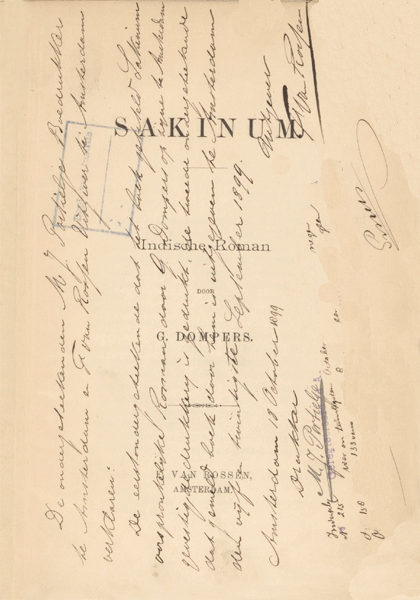 SAKINUM.
Indische Roman
DOOR
G. DOMPERS.
VAN ROSSEN,
AMSTERDAM.
De ondergeteekenden M. J. Portielje Boekdrukker
te Amsterdam en G. van Rossen Uitgever te Amsterdam
verklaren:
De eerstondergeteekende dat het boek getiteld Sakinum
oorspronkelijke Roman door G. Dompers op zijne te Amsterdam
gevestigde drukkerij is gedrukt, de tweede ondergeteekende
dat gemeld boek door hem is uitgegeven te Amsterdam
den vijf en twintigste September 1899.
Amsterdam 18 October 1899
Drukker
M. J. Portielje
Uitgever
G Van Rossen